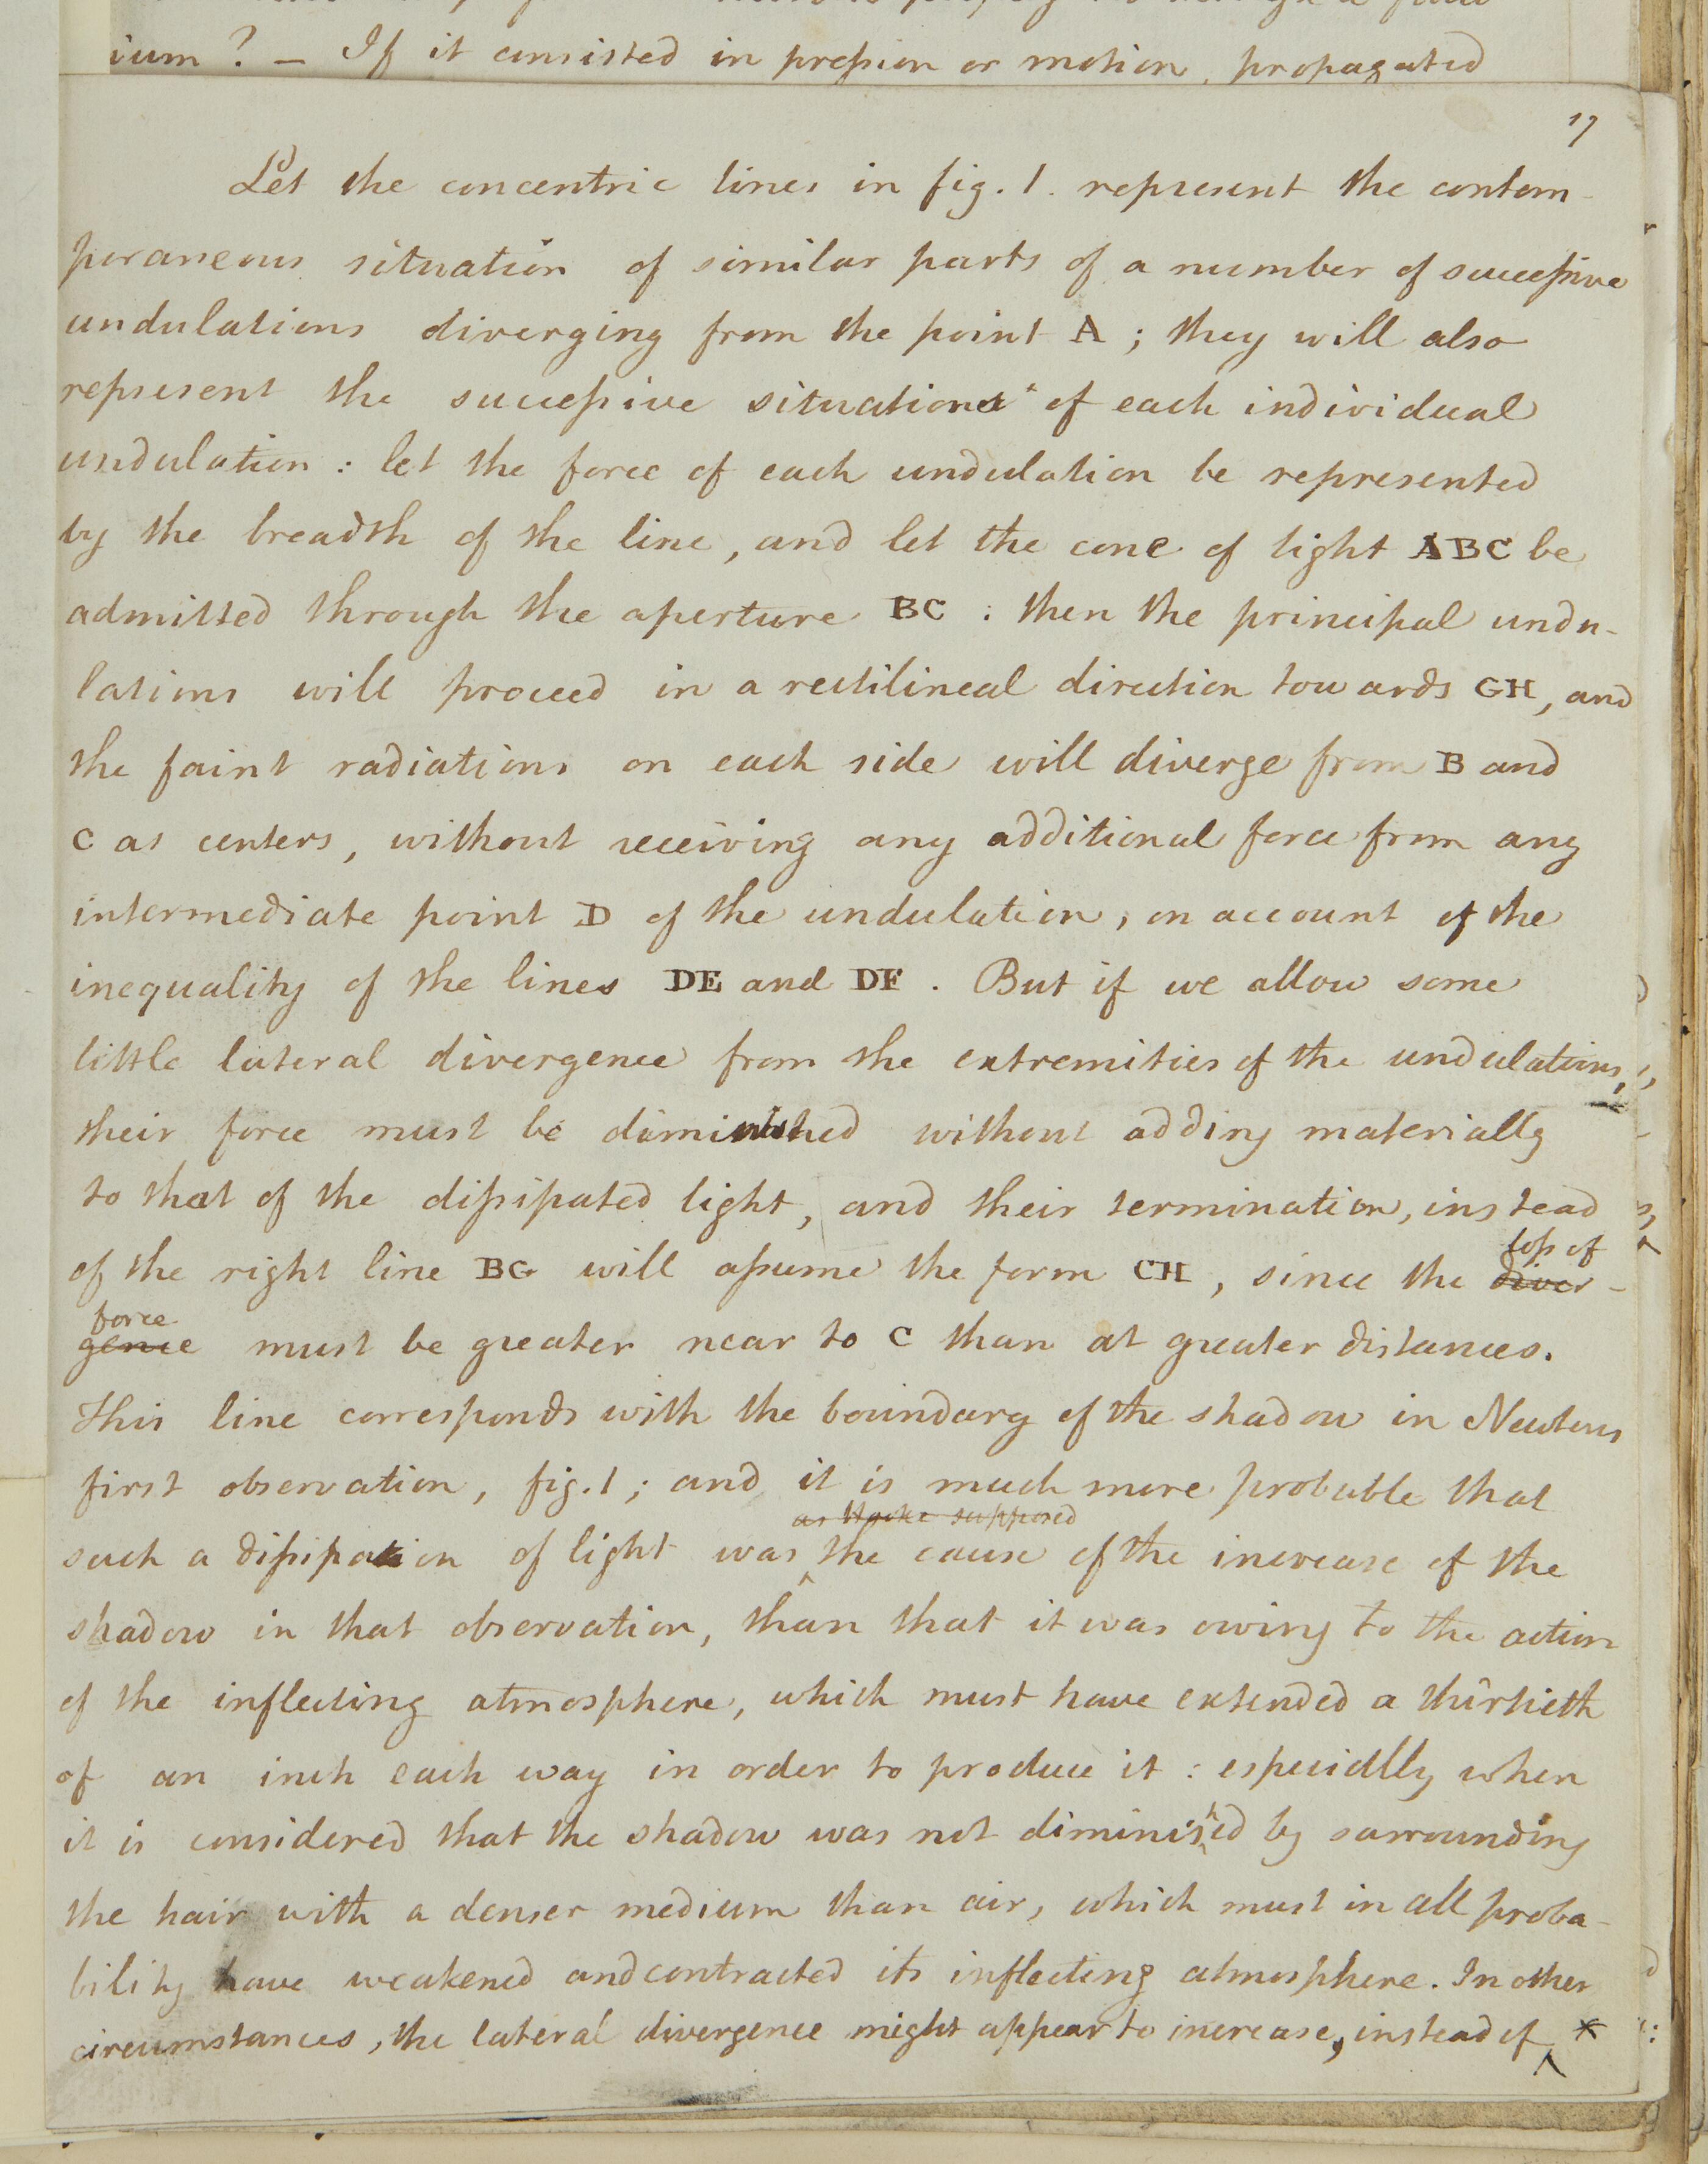 ium? — If it consisted in pression or motion, propagated
17
Let the concentric lines in fig. 1. represent the contem-
poraneous situation of similar parts of a number of successive
undulations diverging from the point A; they will also
represent the successive situations of each individual
undulation: let the force of each undulation be represented
by the breadth of the line, and let the cone of light ABC be
admitted through the aperture BC: then the principal undu-
lations will proceed in a rectilineal direction towards GH, and
the faint radiations on each side will diverge from B and
C as centers, without receiving any additional force from any
intermediate point D of the undulation, on account of the
inequality of the lines DE and DF. But if we allow some
little lateral divergence from the extremities of the undulations,
their force must be diminished without adding materially
to that of the dissipated light, and their termination, instead
top of
of the right line BG will assume the form CH, since the diver-
force
gence must be greater near to C than at greater distances.
This line corresponds with the boundary of the shadow in Newtons
first observation, fig. 1; and it is much more probable that
as Hooke supposed
such a dissipation of light was the cause of the increase of the
shadow in that observation, than that it was owing to the action
of the inflecting atmosphere, which must have extended a thirtieth
of an inch each way in order to produce it: especially when
it is considered that the shadow was not diminished by surrounding
the hair with a denser medium than air, which must in all proba-
bility have weakened and contracted its inflecting atmosphere. In other
circumstances, the lateral divergence might appear to increase, instead of *